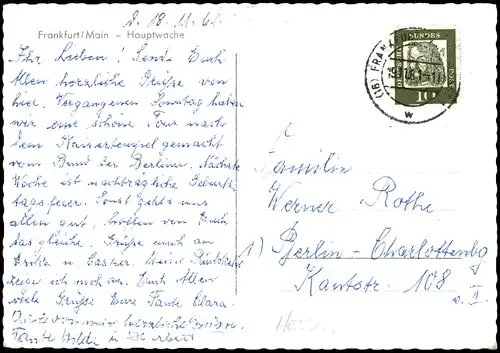 d. 18. 11. 61.
Frankfurt/Main – Hauptwache
Ihr Lieben! Sende Euch
Allen herzliche Grüße von
hier. Vergangenen Sonntag haben
wir eine schöne Tour nach
dem gemacht
vom Bund der Berliner. Nächste
Woche ist nachträgliche Geburts-
tagsfeier. Sonst geht's uns
allen gut, hoffen von Euch
das gleiche. Grüße auch an
Erika u.
ich noch an. Euch Allen
viele Grüße Eure Tante Clara.
Auch von mir herzliche Grüße
Tante Hilde u. Herbert
(16) FRANKFURT
DEUTSCHE BUNDESPOST
10
w
Familie
Werner Rothe
1) Berlin-Charlottenbg
Kantstr. 108
v. II
Hessen